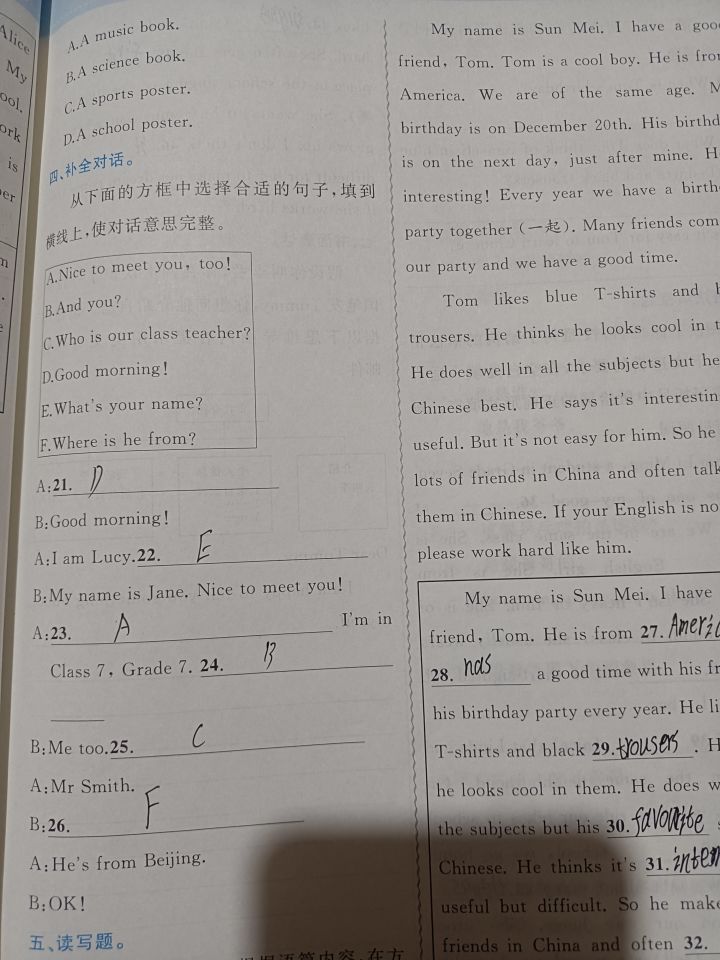 Alice
My
ool.
ork
is
er
n
A.A music book.
B.A science book.
C.A sports poster.
D.A school poster.
四、补全对话。
从下面的方框中选择合适的句子,填到
横线上,使对话意思完整。
A.Nice to meet you, too!
B.And you?
C.Who is our class teacher?
D.Good morning!
E.What's your name?
F.Where is he from?
A:21. D
B:Good morning!
A:I am Lucy.22. E
B:My name is Jane. Nice to meet you!
A:23. A I'm in
Class 7, Grade 7. 24. B
B:Me too.25. C
A:Mr Smith.
B:26. F
A:He's from Beijing.
B:OK!
五、读写题。
My name is Sun Mei. I have a goo
friend, Tom. Tom is a cool boy. He is fro
America. We are of the same age. M
birthday is on December 20th. His birthd
is on the next day, just after mine. H
interesting! Every year we have a birth
party together (一起). Many friends com
our party and we have a good time.
Tom likes blue T-shirts and b
trousers. He thinks he looks cool in t
He does well in all the subjects but he
Chinese best. He says it's interestin
useful. But it's not easy for him. So he
lots of friends in China and often talk
them in Chinese. If your English is no
please work hard like him.
My name is Sun Mei. I have
friend, Tom. He is from 27. Americ
28. has a good time with his fr
his birthday party every year. He li
T-shirts and black 29. trousers. H
he looks cool in them. He does w
the subjects but his 30. favourite s
Chinese. He thinks it's 31. inter
useful but difficult. So he make
friends in China and often 32.